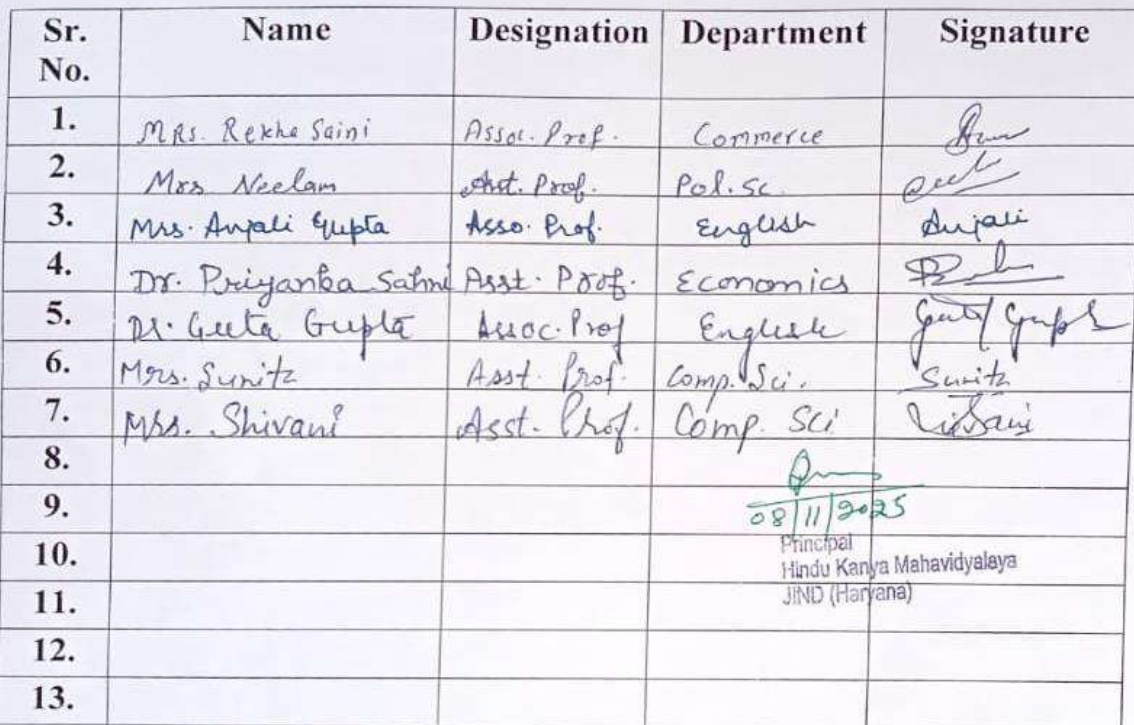 Sr. No. Name Designation Department Signature
1. MRs. Rekha Saini Assoc. Prof. Commerce
2. Mrs Neelam Asst. Prof. Pol. Sc.
3. Mrs. Anjali Gupta Asso. Prof. English Anjali
4. Dr. Priyanka Sahni Asst. Prof. Economics
5. Dr. Geeta Gupta Assoc. Prof English Geeta Gupta
6. Mrs. Sunita Asst. Prof. Comp. Sci. Sunita
7. Mrs. Shivani Asst. Prof. Comp. Sci
8.
9. 08/11/2025
Principal
10. Hindu Kanya Mahavidyalaya
JIND (Haryana)
11.
12.
13.